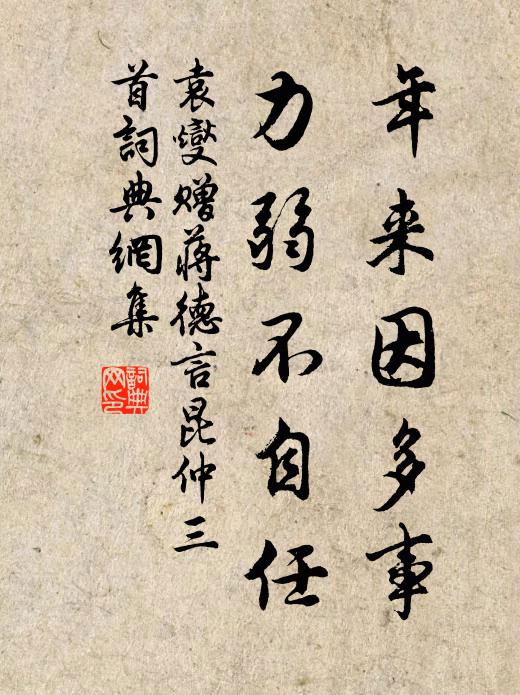 年来因多事
力弱不自任
袁燮赠蒋德言昆仲三
首詞典網集
詞典
网印